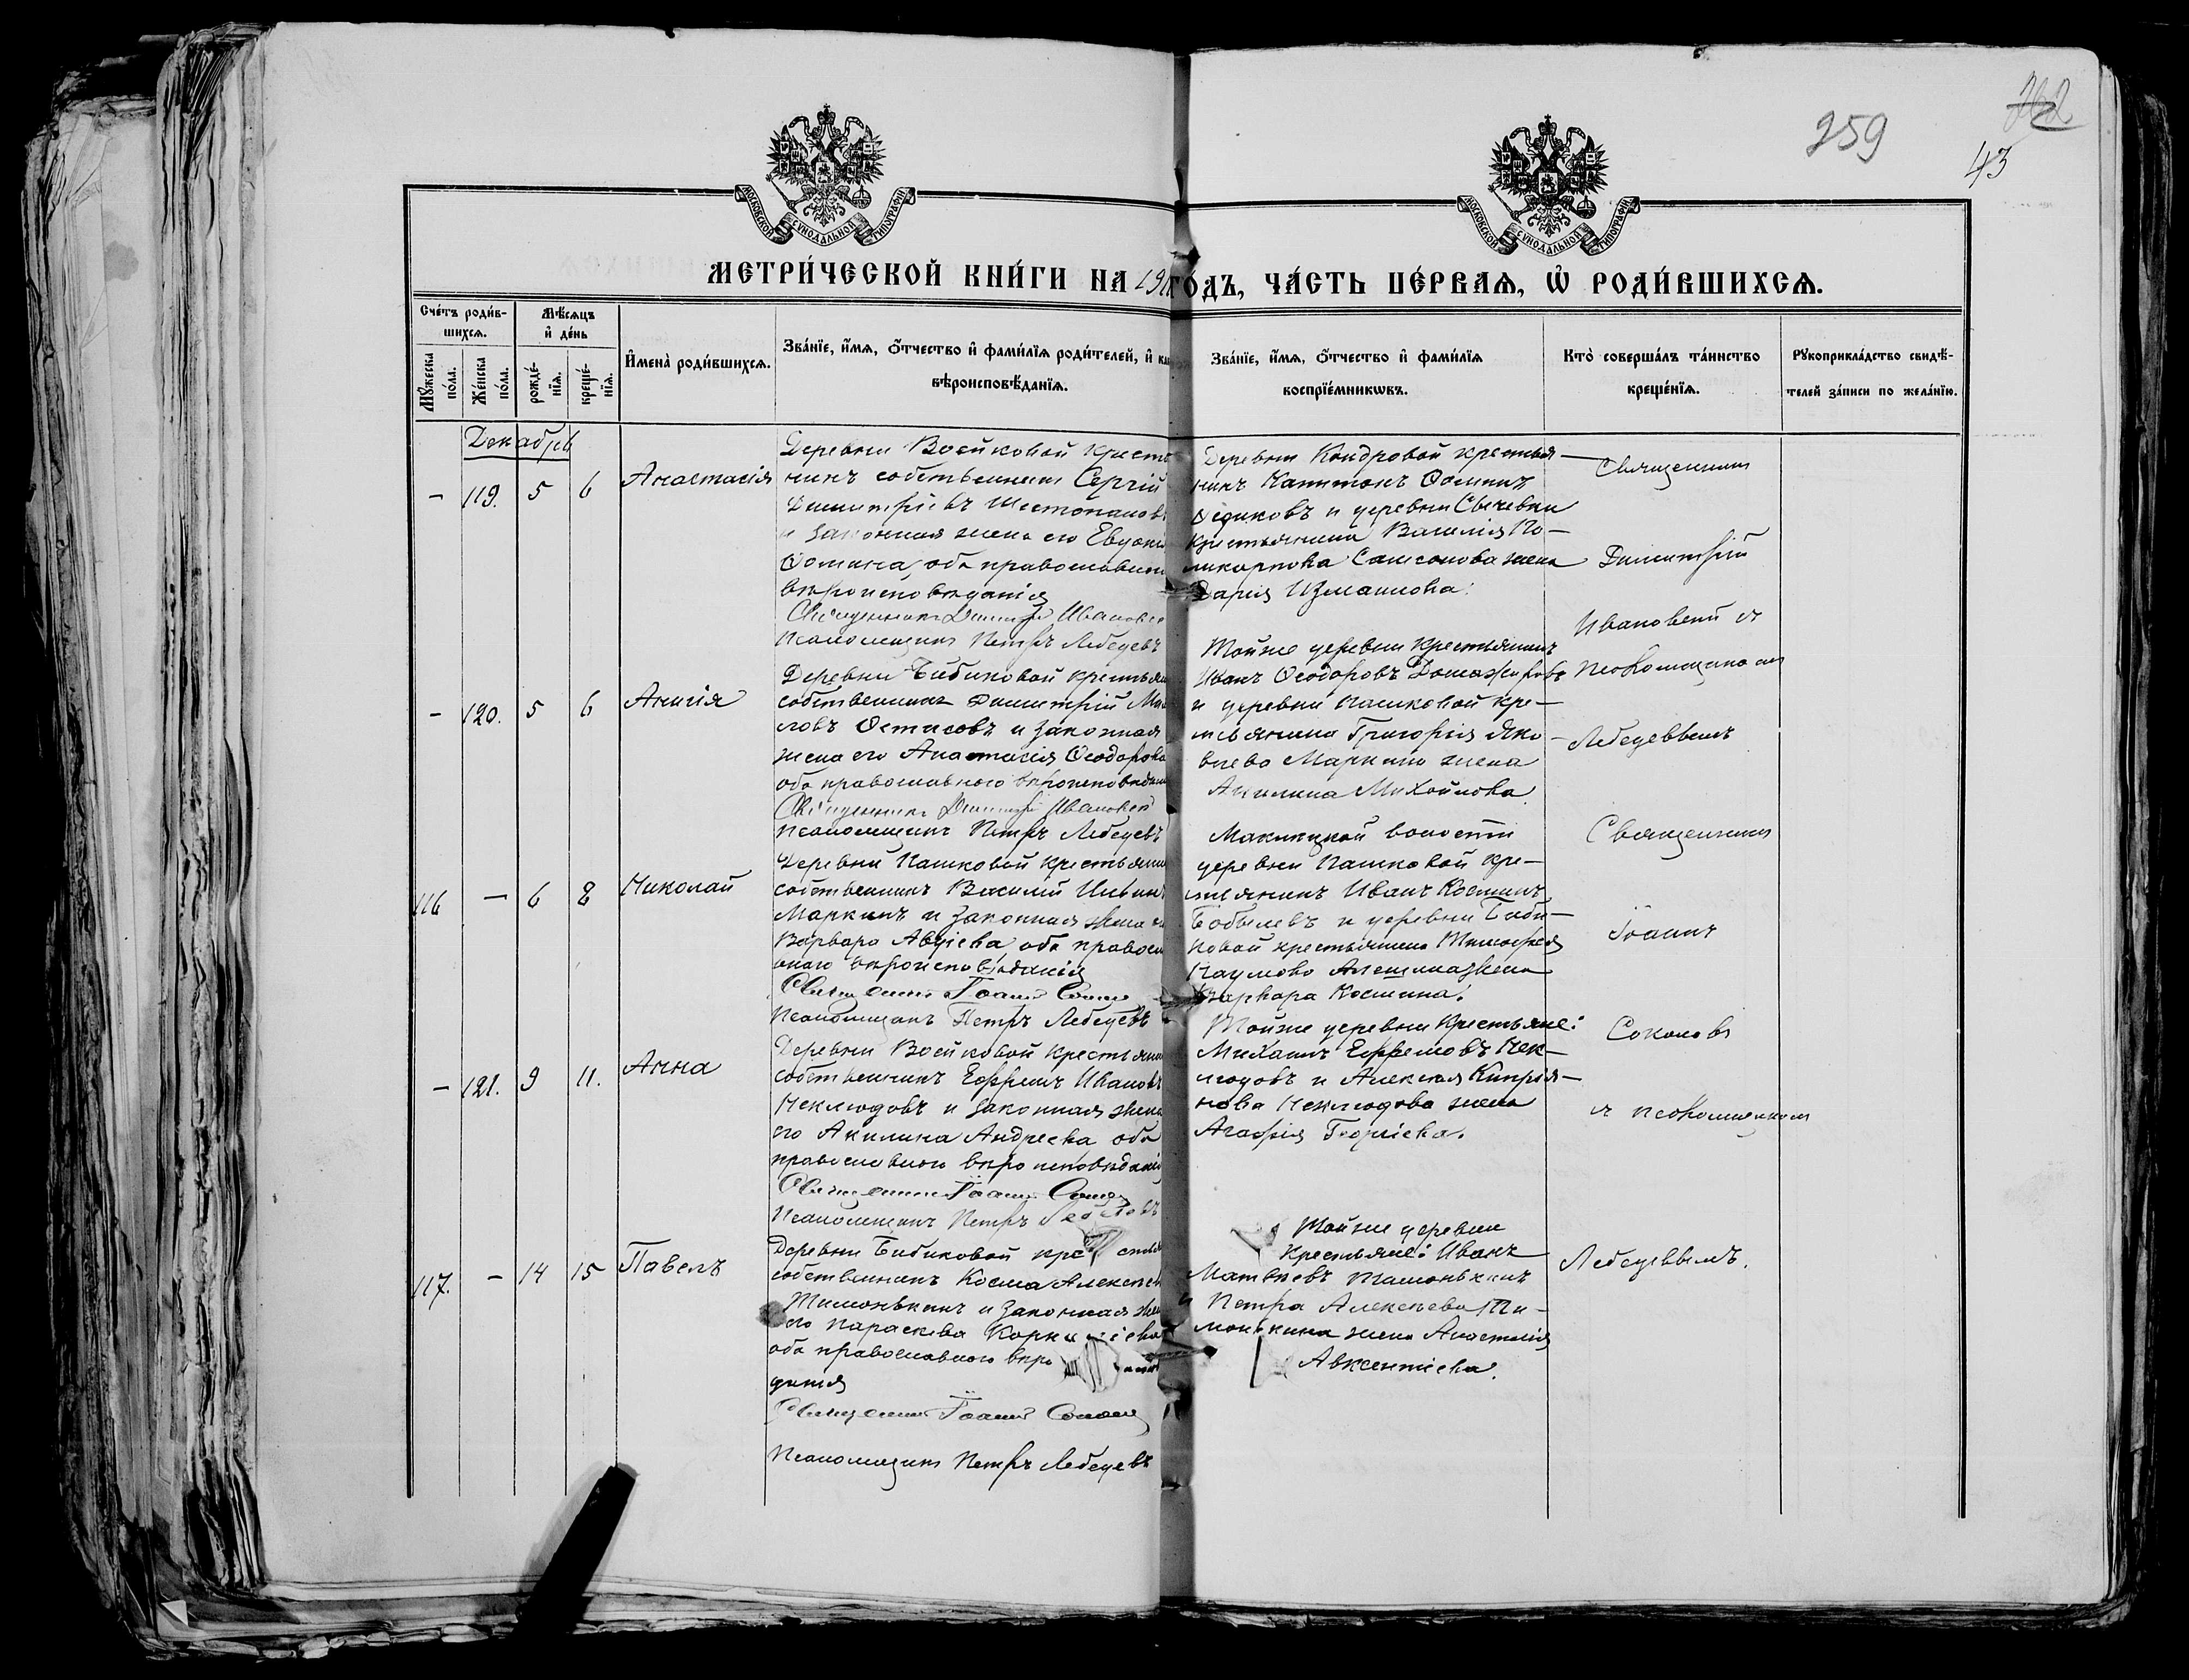 259
43
МОСКОВСКОЙ СѴНОДАЛЬНОЙ ТИПОГРАФІИ
МОСКОВСКОЙ СѴНОДАЛЬНОЙ ТИПОГРАФІИ
МЕТРИ́ЧЕСКОЙ КНИ́ГИ НА 191 ГО́ДЪ, ЧА́СТЬ ПЕ́РВАѦ, Ѡ҆ РОДИ́ВШИХСѦ.
Сче́тъ роди́в-
шихсѧ.
Мꙋ́жеска по́ла.
Же́нска по́ла.
Мѣ́сѧцъ
и҆ де́нь
рожде́-
нїѧ.
креще́-
нїѧ.
И҆мена̀ роди́вшихсѧ.
Зва́нїе, и҆́мѧ, ѻ҆́тчество и҆ фами́лїѧ роди́телей, и҆
вѣроисповѣ́данїѧ.
Зва́нїе, и҆́мѧ, ѻ҆́тчество и҆ фами́лїѧ
воспрїе́мникѡвъ.
Кто̀ соверша́лъ та́инство
креще́нїѧ.
Рꙋкоприкла́дство свидѣ́-
телей за́писи по жела́нїю.
Декабрь
- 119. 5 6 Анастасія
Деревни Воейковой кресть
нинъ собственникъ Сергій
Димитріевъ Шестопалов
и законная жена его Евдокі
Ѳомина, оба православнаго
вѣроисповѣданія
Священникъ Димитрій Ивановскій
Псаломщикъ Петръ Лебедевъ
Деревни Кондровой крестья-
нинъ Капитонъ Ѳоминъ
и деревни Сычевки
крестьянина Василія По-
ликарпова Самсонова жена
Дарія Измаилова.
Священникъ
Димитрій
Ивановскій съ
псаломщикомъ
Лебедевымъ
- 120. 5 6 Анисія
Деревни Бибиковой крестьян
собственникъ Димитрій
ловъ и законная
жена его Анастасія Ѳеодорова
оба православнаго вѣроисповѣдан
Священникъ Димитрій Ивановскій
Псаломщикъ Петръ Лебедевъ
Тойже деревни крестьянинъ
Иванъ Ѳеодоровъ Домажировъ
и деревни Пашковой кре-
стьянина Григорія Яко-
влева Маркина жена
Акилина Михайлова.
116 - 6 8 Николай
Деревни Пашковой крестьянин
собственникъ Василій Ильинъ
Маркинъ и законная жена
Варвара Авдіева оба правосл
внаго вѣроисповѣданія
Священникъ Іоаннъ Соколовъ
Псаломщикъ Петръ Лебедевъ
волости
деревни Пашковой кре-
стьянинъ Иванъ Косминъ
Бобылевъ и деревни Биби-
ковой крестьянина Тимофея
Наумова Алешина жена
Варвара Космина.
Священникъ
Іоаннъ
Соколовъ
съ псаломщикомъ
Лебедевымъ.
- 121. 9 11. Анна
Деревни Воейковой крестьянин
собственникъ Ефремъ Ивановъ
Неклюдовъ и законная жена
его Акилина Андреева оба
православнаго вѣроисповѣданія
Священникъ Іоаннъ Соколовъ
Псаломщикъ Петръ Лебедевъ
Тойже деревни крестьяне:
Михаилъ Ефремовъ Нек-
людовъ и Алексѣя Кипрія-
нова Неклюдова жена
Агафія Георгіева.
117. - 14 15 Павелъ
Деревни Бибиковой кре стья
собственникъ Косма Алексѣев
Тимонькинъ и законная жен
его Параскева Корн іева
оба православнаго вѣро
данія
Священникъ Іоаннъ Соколовъ
Псаломщикъ Петръ Лебедевъ
Тойже деревни
крестьяне: Иванъ
Матвѣевъ Тимонькинъ
и Петра Алексѣева Ти-
монькина жена Анастасія
Авксентіева.